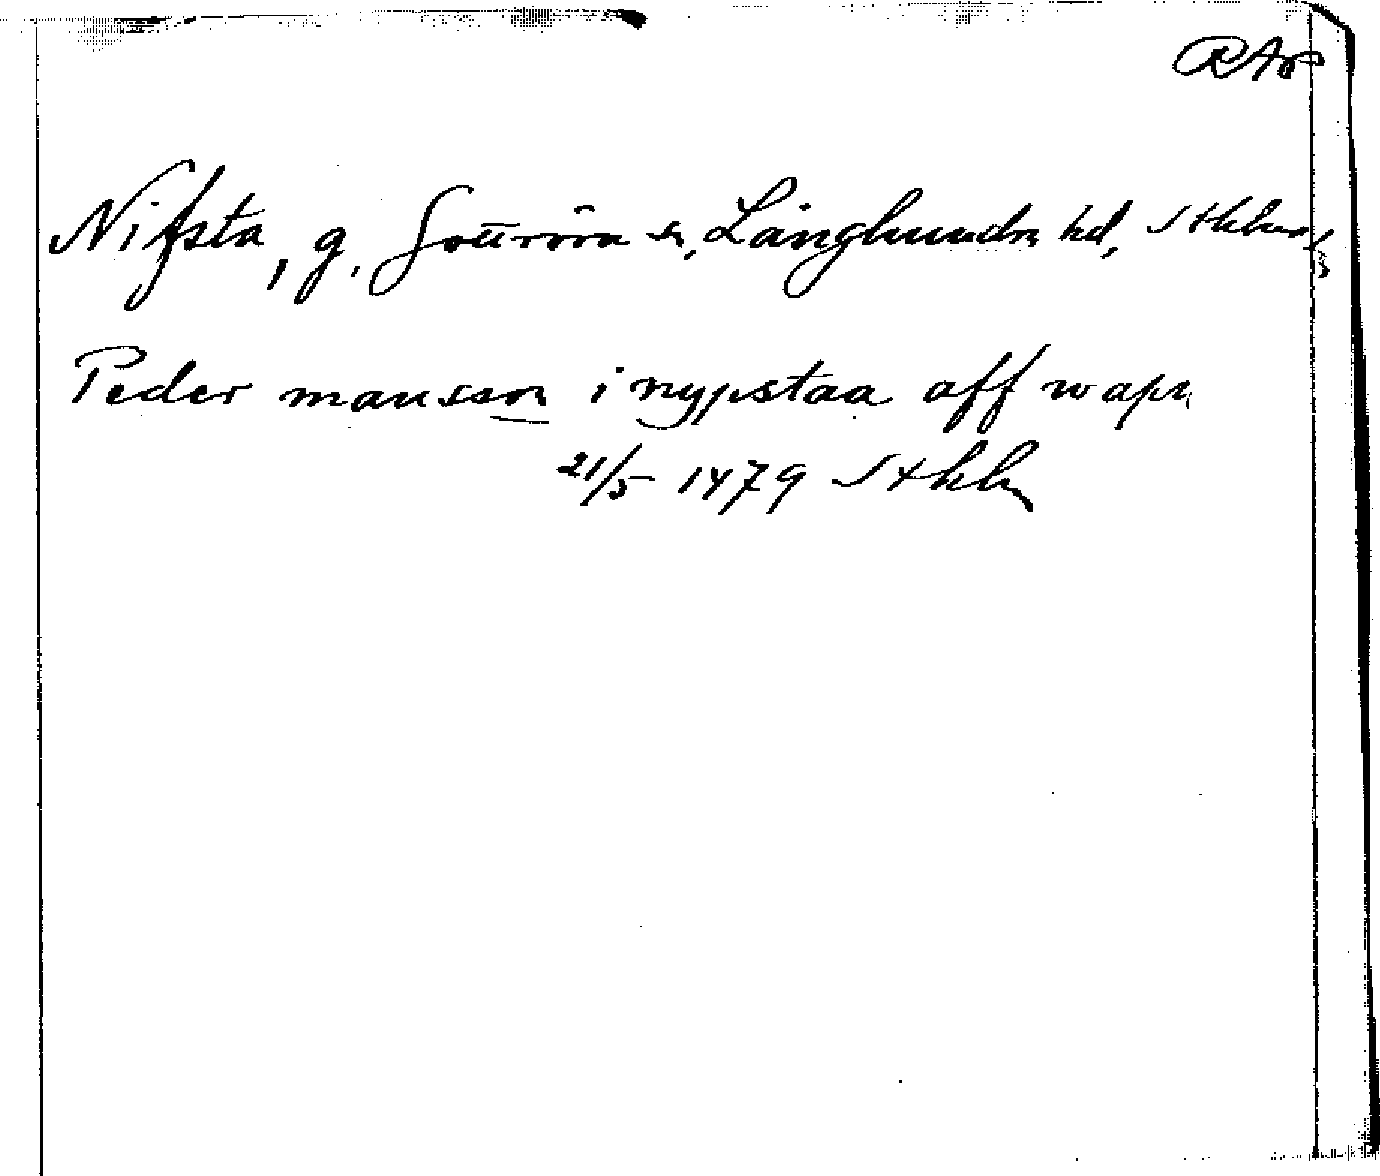 RAp
Nifsta, g. Gottröra sn, Långhundra hd, Sthlms l
Peder mansson i nypstaa aff wapn
21/5 1479 Sthlm